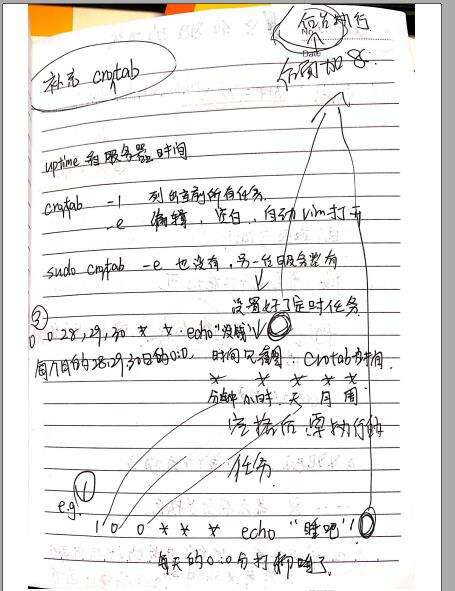 后台执行
No.
Date
后面加 &
补充 crontab
uptime 看服务器时间
crontab -l 列出当前所有任务
-e 编辑，空白，自动vim打开
sudo crontab -e 也没有，另一台服务器有
设置好了定时任务
②
0 0 28,29,30 * * echo "没钱"
每个月的28,29,30日的0:0.
时间 crontab时间
* * * * *
分钟 小时 天 月 周
空格后：要执行的
任务
e.g. ①
1 0 0 * * * echo "睡吧"
每天的0:0分打印睡了